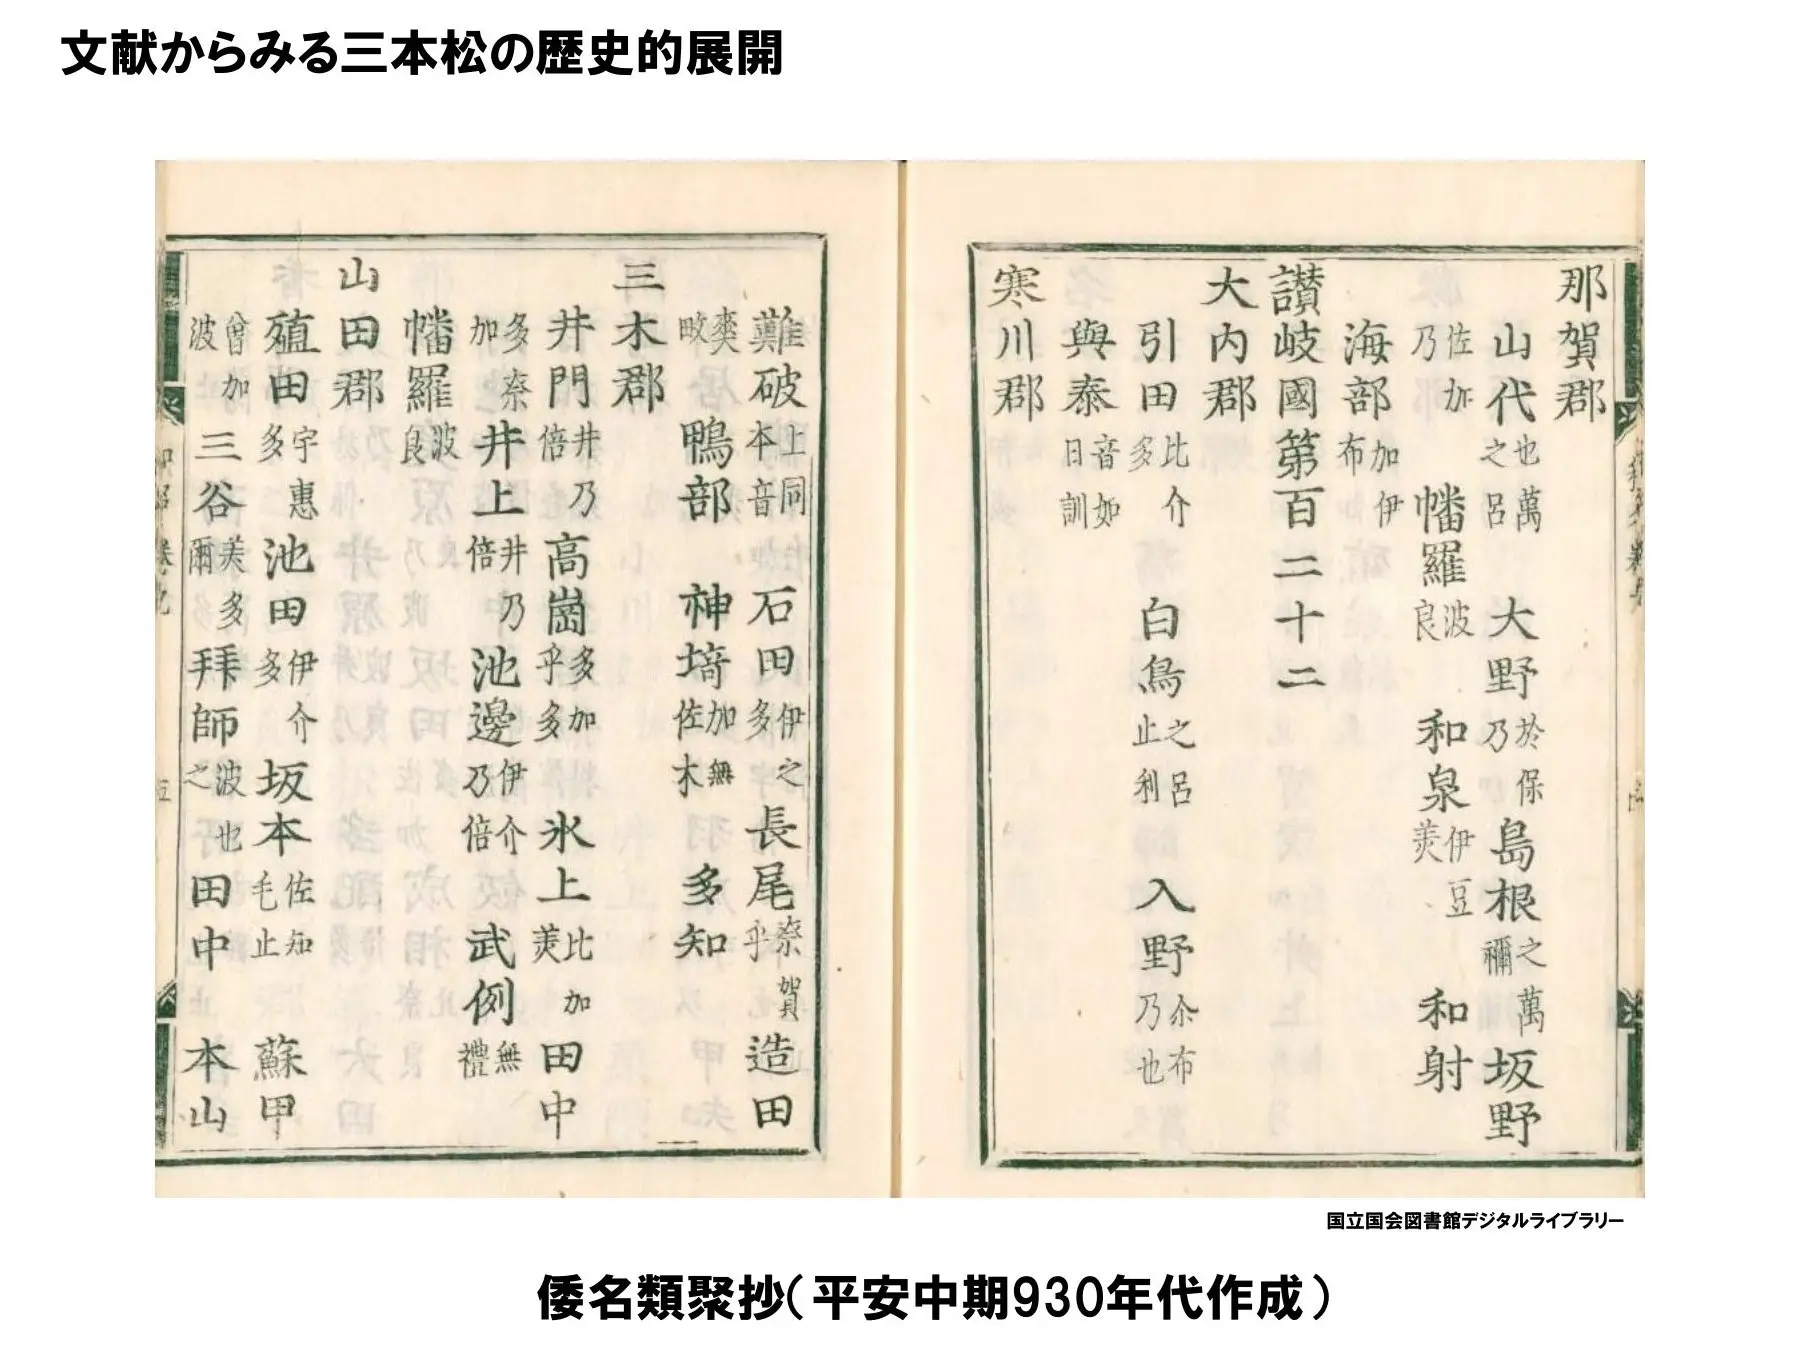 文献からみる三本松の歴史的展開
那賀郡
山代也萬之呂 大野於保乃 島根之萬禰 坂野
佐加乃 幡羅波良 和泉伊豆 和射
海部加伊布
讃岐國第百二十二
大内郡
引田比介多 白鳥之呂止利 入野尒布乃也
與泰音如日訓
寒川郡
難破上同本音 石田伊之多 長尾奈賀乎 造田
鴨部 神埼加無佐木 多知
三木郡
井門井乃倍 高崗多加乎多 氷上比加 田中
多奈加 井上井乃倍 池邊伊介乃倍 武例無禮
幡羅波良
山田郡
殖田宇惠多 池田伊介多 坂本佐加毛止 蘇甲
曾加波 三谷美多爾 拜師波也之 田中 本山
国立国会図書館デジタルライブラリー
倭名類聚抄（平安中期930年代作成）